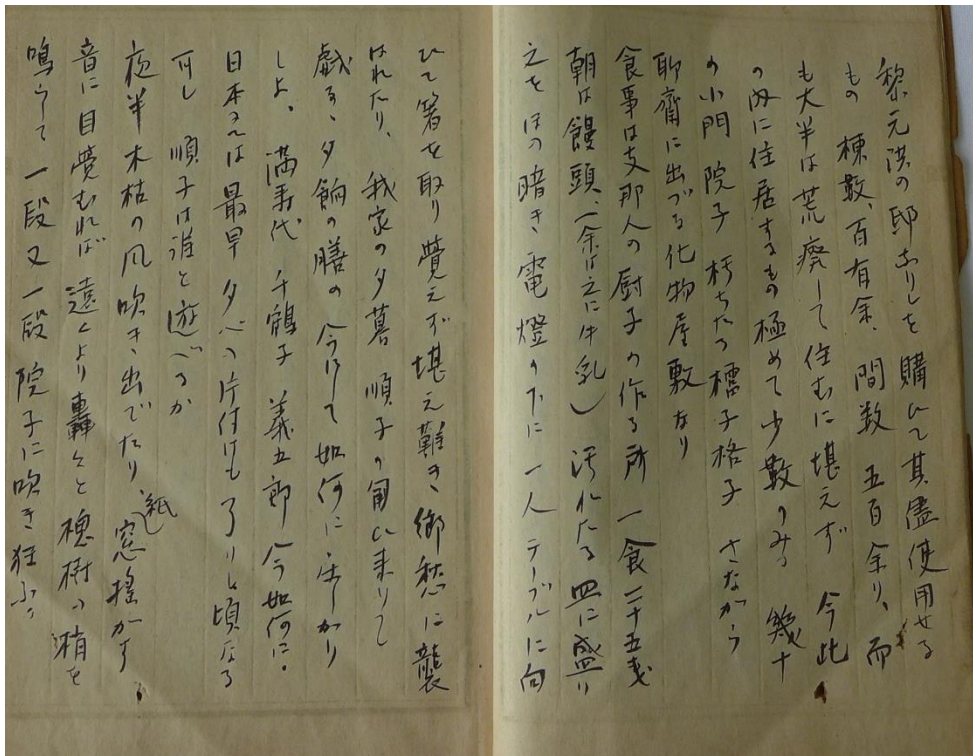 黎元洪の邸なりしを購ひて其儘使用せる
もの 棟数、百有余、間数 五百余り、而
も大半は荒廃して住むに堪えず 今此
の内に住居するもの極めて少数のみ 幾十
の小門 院子 朽ちたる櫺子格子 さながら
聊斎に出づる化物屋敷なり
食事は支那人の厨子の作る所 一食二十五銭
朝は饅頭、(余は之に牛乳) 汚れたる皿に盛り
之をほの暗き電燈の下に 一人テーブルに向
ひて箸を取り 覚えず堪え難き郷愁に襲
はれたり、我家の夕暮 順子の匍ひ来りて
戯る、夕餉の膳の 今にして如何に
しよ。満寿代 千鶴子 義五郎 今如何に。
日本ならば最早 夕べの片付けも了りし頃なる
可し 順子は誰と遊べるか
夜半木枯の風吹き出でたり、紙窓揺がす
音に目覚むれば遠くより轟々と槐樹の梢を
鳴らして一段又一段 院子に吹き狂ふ。